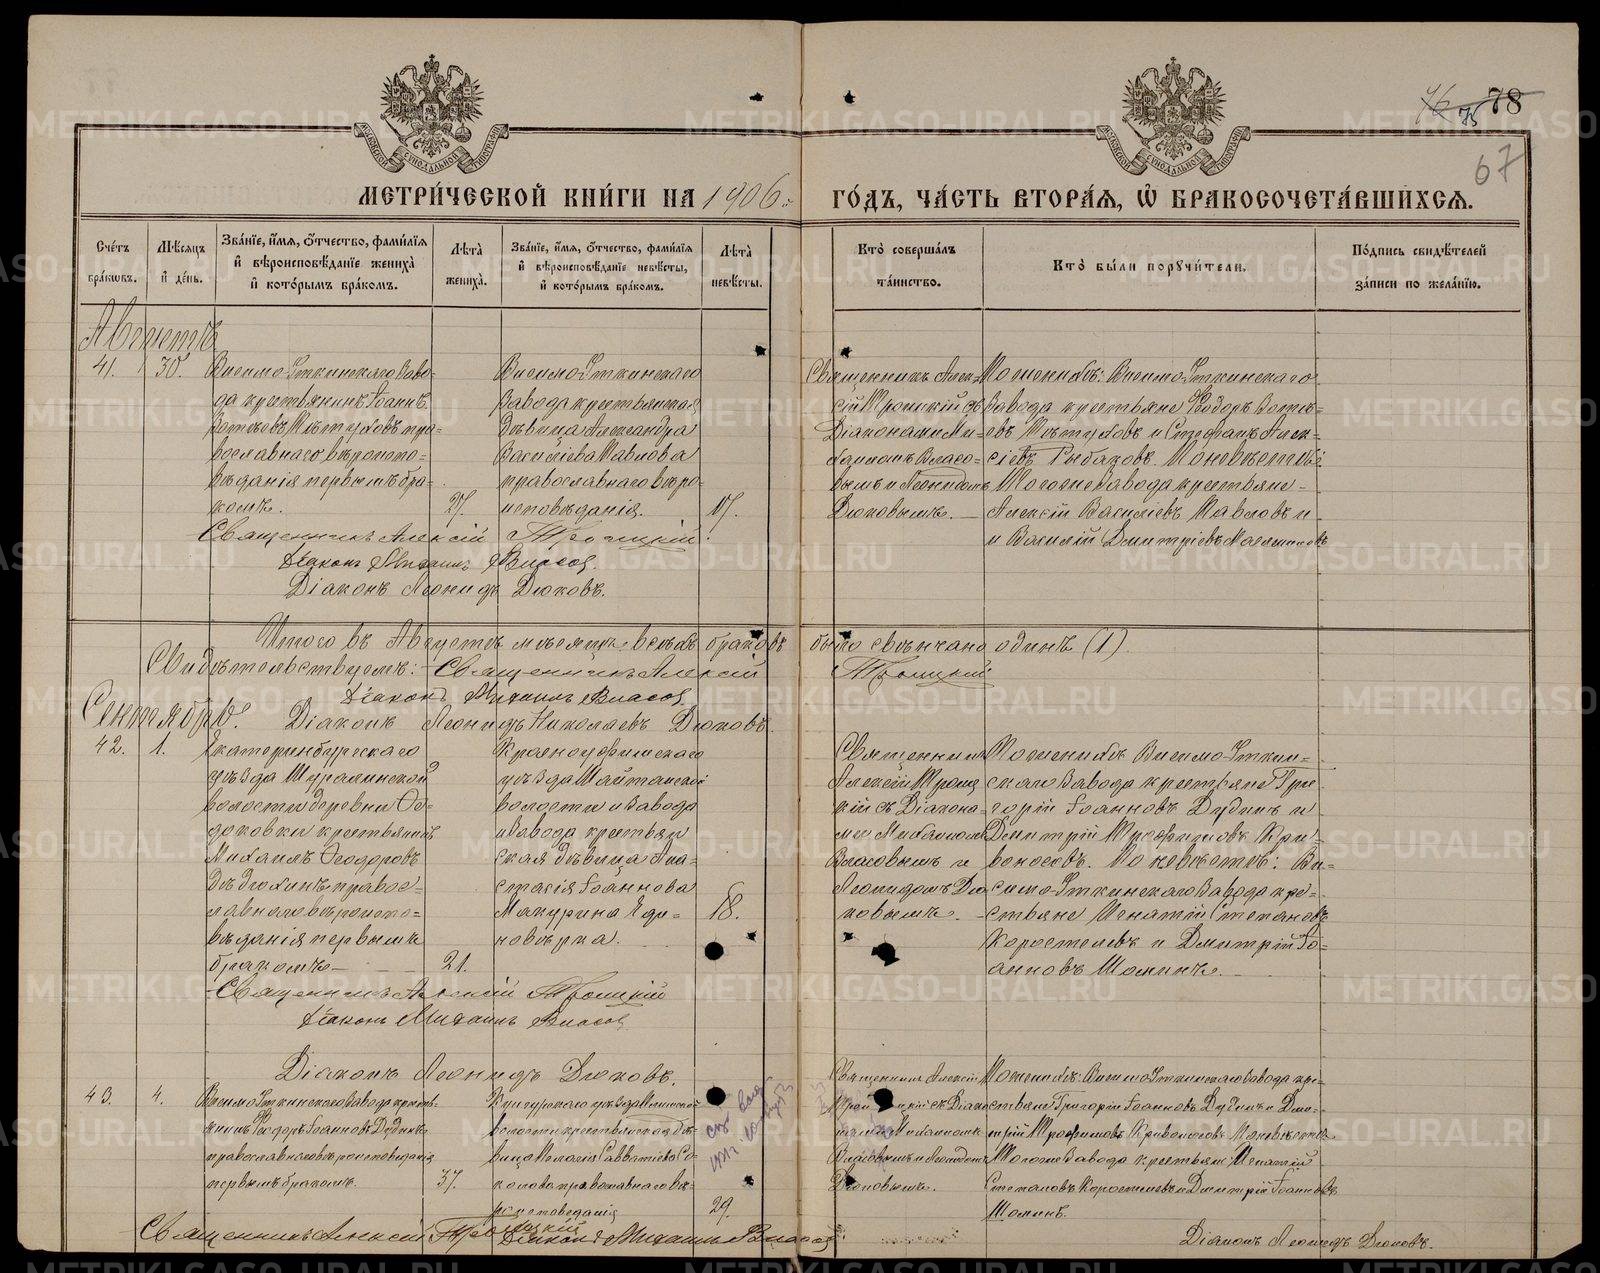 МЕТРИ́ЧЕСКОЙ КНИ́ГИ НА 1906 г.
ГО́ДЪ, ЧА́СТЬ ВТОРА́Я, Ѽ БРАКОСОЧЕТА́ВШИХСЯ.
78
75
67
Сче́тъ бра́кѡвъ.
Мѣ́сяцъ и҆ де́нь.
Зва́нїе, и҆́мя, ѻ҆́тчество, фами́лїя и҆ вѣроисповѣ́данїе жениха̀ и҆ кото́рымъ бра́комъ.
Лѣ́та жениха̀.
Зва́нїе, и҆́мя, ѻ҆́тчество, фами́лїя и҆ вѣроисповѣ́данїе невѣ́сты, и҆ кото́рымъ бра́комъ.
Лѣ́та невѣ́сты.
Кто̀ соверша́лъ та́инство.
Кто̀ бы́ли порꙋчи́тели.
По́дпись свидѣ́телей за́писи по жела́нїю.
Августъ
41.
30.
Висимо-Уткинскаго заво-
да крестьянинъ Іоаннъ
Вотѣевъ Мѣтуховъ пра-
вославнаго вѣроиспо-
вѣданія первымъ бра-
комъ.
27.
Висимо-Уткинскаго
завода крестьянская
дѣвица Александра
Василіева Павлова
православнаго вѣро-
исповѣданія.
17.
Священникъ Алек-
сій Троицкій съ
Діаконами Ми-
хаиломъ Власо-
вымъ и Леонидомъ
Дюковымъ.
По женихѣ: Висимо-Уткинскаго
завода крестьяне Ѳеодоръ Вотѣ-
евъ Мѣтуховъ и Стефанъ Алек-
сіевъ Рыбаковъ. По невѣстѣ:
Того же завода крестьяне
Алексій Василіевъ Павловъ и
и Василій Дмитріевъ
Священникъ Алексій Троицкій.
Діаконъ Михаилъ Власов.
Діаконъ Леонидъ Дюковъ.
Итого въ Августѣ мѣсяцѣ всѣхъ браковъ было свѣнчано одинъ (1)
Свидѣтельствуемъ: Священникъ Алексій Троицкій
Діаконъ Михаилъ Власов
Діаконъ Леонидъ Николаевъ Дюковъ.
Сентябрь.
42.
1.
Екатеринбургскаго
уѣзда Шуралинской
волости деревни Ѳе-
доковки крестьянинъ
Михаилъ Ѳеодоровъ
Дѣдюхинъ правос-
лавнаго вѣроиспо-
вѣданія первымъ
бракомъ
21.
Красноуфимскаго
уѣзда Шайтанской
волости и завода
завода крестьян
ская дѣвица Ана-
стасія Іоаннова
Макурина Еди-
новѣрка.
18.
Священникъ
Алексій Троиц
кій съ Діакона-
ми Михаиломъ
Власовымъ и
Леонидомъ Дю
ковымъ.
По женихѣ Висимо-Уткин-
скаго завода крестьяне Гри-
горій Іоанновъ Дудинъ и
Дмитрій Трофимовъ Кри-
воносовъ. По невѣстѣ: Ви-
симо-Уткинскаго завода кре-
стьяне Игнатій Степановъ
Коростелевъ и Дмитрій Іо-
анновъ Шоминъ.
Священникъ Алексій Троицкій
Діаконъ Михаилъ Власов
Діаконъ Леонидъ Дюковъ.
43.
4.
Висимо-Уткинскаго завода кресть-
янинъ Ѳеодоръ Іоанновъ Дудинъ
православнаго вѣроисповѣданія
первымъ бракомъ.
37.
Кунгурскаго уѣзда
волости крестьянская дѣ-
вица Пелагія Савватіева Со-
колова православнаго вѣ-
роисповеданія
29.
Священникъ Алексій
Троицкій съ Діако
нами Михаиломъ
Власовымъ и Леонидомъ
Дюковымъ.
По женихѣ: Висимо-Уткинскаго завода кре-
стьяне Григорій Іоанновъ Дудинъ и Дми-
трій Трофимовъ Кривоносовъ. По невѣстѣ:
Того же завода крестьяне Игнатій
Степановъ Коростелевъ и Дмитрій Іоанновъ
Шоминъ.
Священникъ Алексій Троицкій Діаконъ Михаилъ Власов
Діаконъ Леонидъ Дюковъ.
METRIKI.GASO-URAL.RU